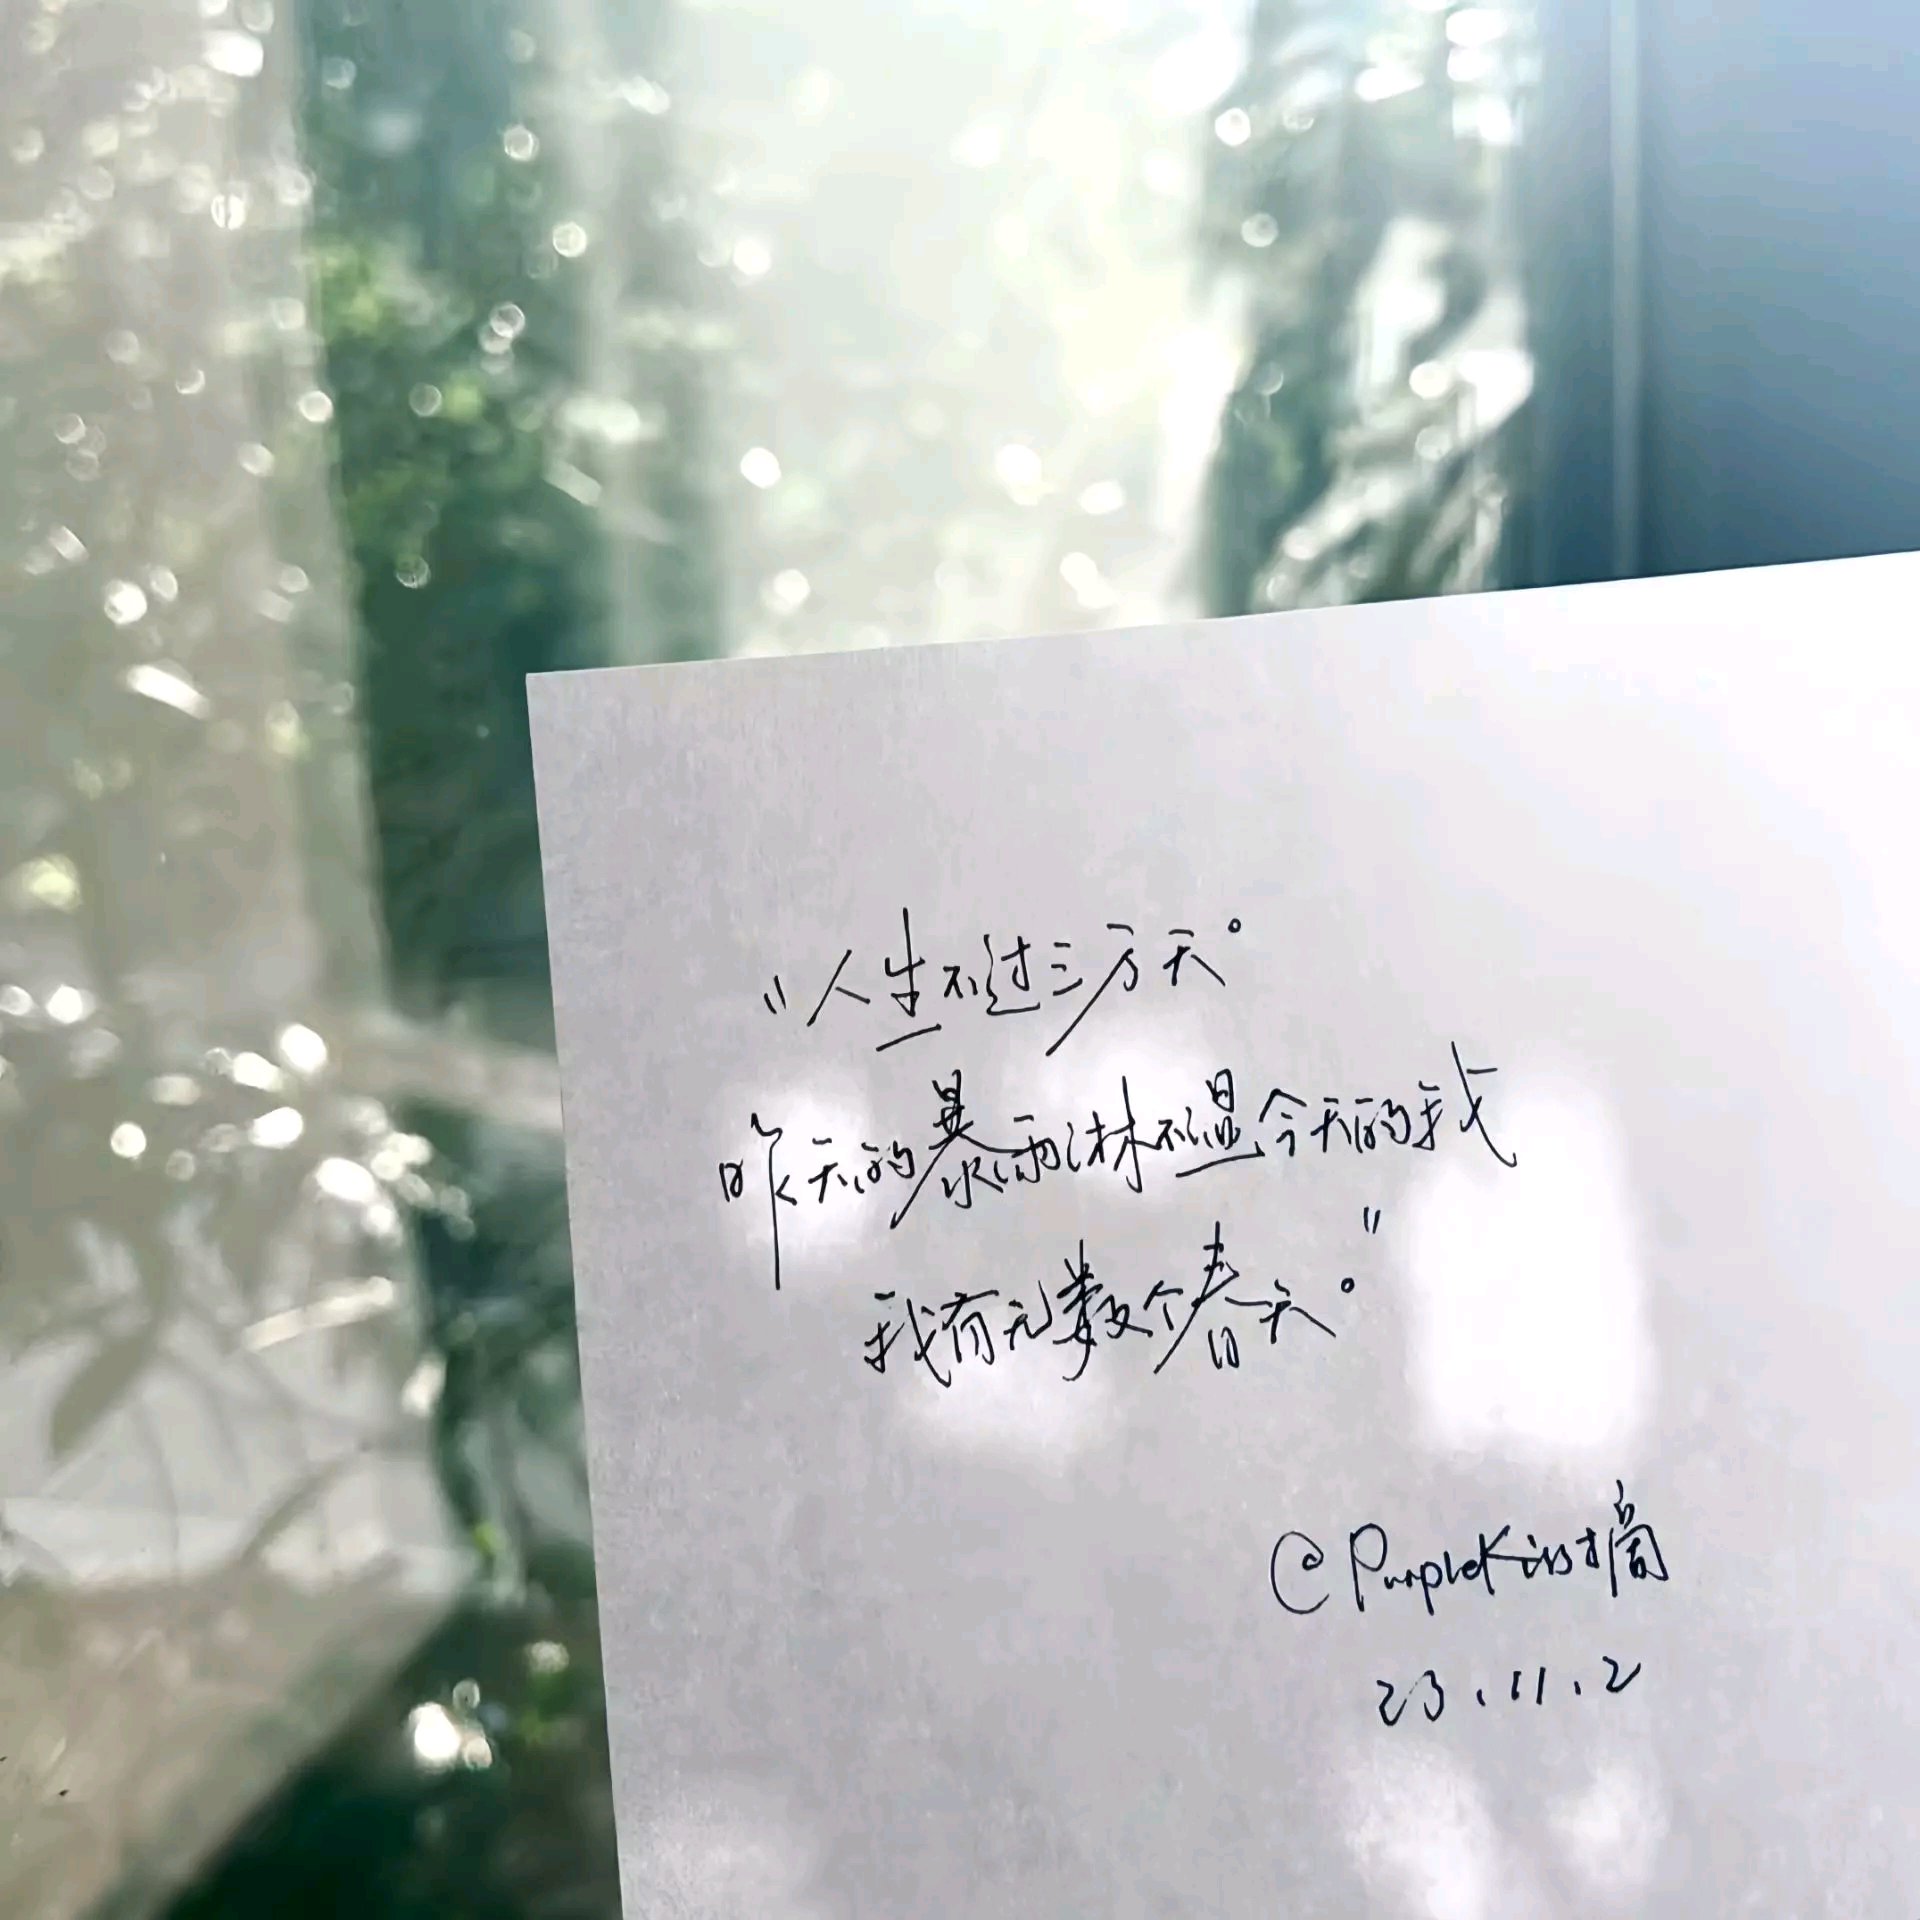 “人生不过三万天。
昨天的暴雨淋不湿今天的我
我有无数个春天。”
@PurpleK的摘
23.11.2